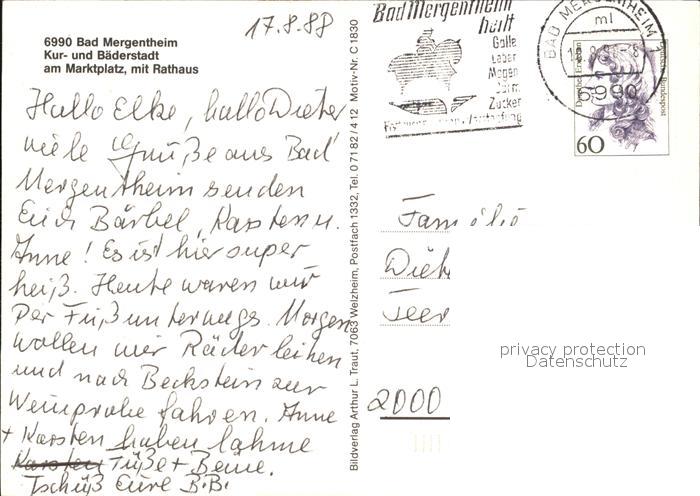 17.8.88
6990 Bad Mergentheim
Kur- und Bäderstadt
am Marktplatz, mit Rathaus
Hallo Elke, hallo Dieter
viele Grüße aus Bad
Mergentheim senden
Euch Bärbel, Karsten u.
Anne! Es ist hier super
heiß. Heute waren wir
per Fuß unterwegs. Morgen
wollen wir Räder leihen
und nach Beckstein zur
Weinprobe fahren. Anne
+ Karsten haben lahme
Karsten Füße + Beine.
Tschüß Eure B.B.
Bildverlag Arthur L. Traut, 7063 Welzheim, Postfach 1332, Tel. 0 71 82 / 4 12 Motiv-Nr. C 1830
Bad Mergentheim
heilt
Galle
Leber
Magen
Darm
Zucker
BAD MERGENTHEIM 1
ml
6990
60
Familie
Diet
Teer
2000
privacy protection
Datenschutz